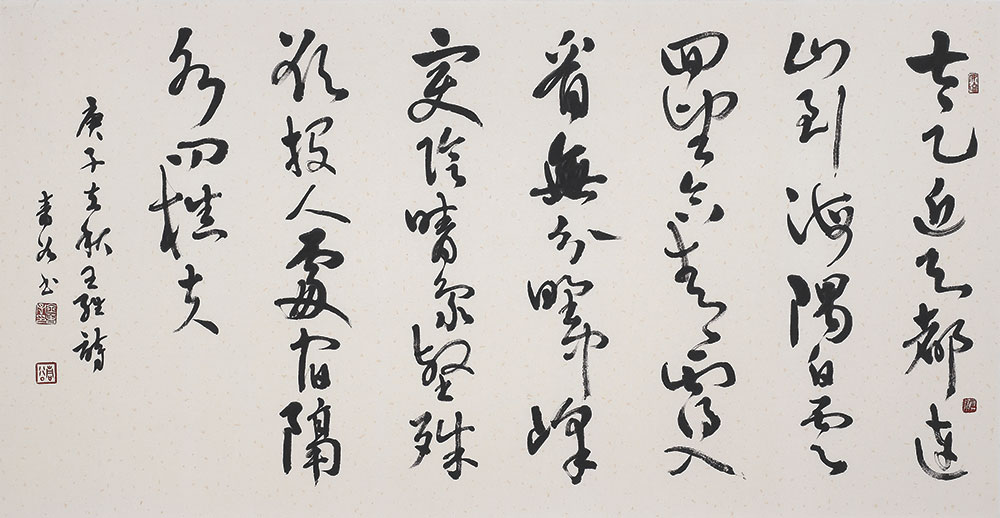 太乙近天都連
山到海隅白雲
回望合青靄入
看無分野中峰
變陰晴眾壑殊
欲投人處宿隔
水問樵夫
庚子立秋王維詩
书